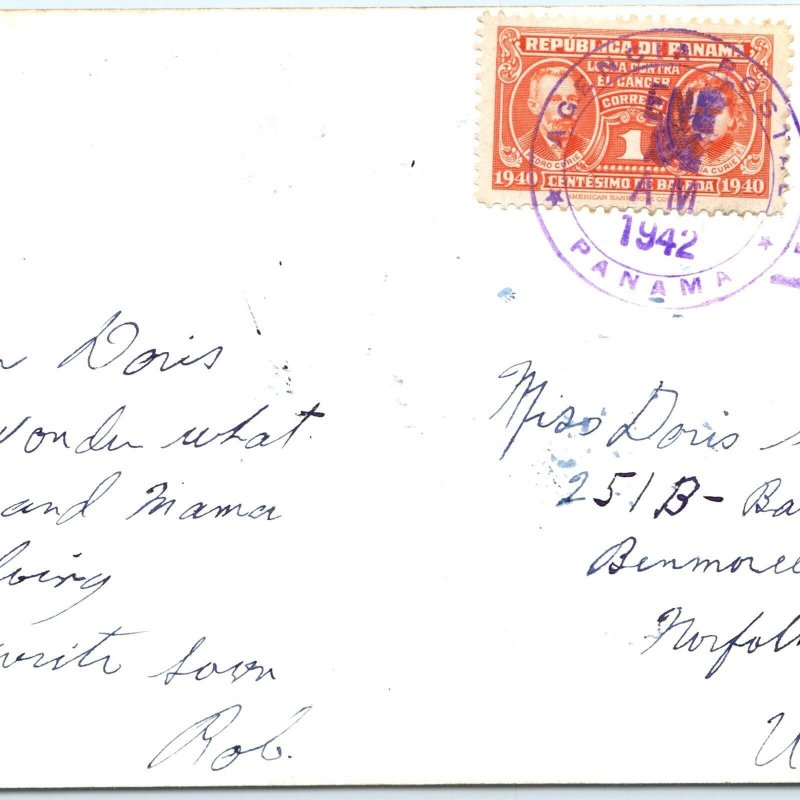 REPÚBLICA DE PANAMÁ
LUCHA CONTRA
EL CÁNCER
CORREOS
1
PEDRO CURIE
MARÍA CURIE
1940 CENTÉSIMO DE BALBOA 1940
AMERICAN BANK NOTE
AGENCIA POSTAL
EN
AM
1942
PANAMA
Doris
Wonder what
and Mama
write soon
Rob.
Miss Doris
251B- Ba
Benmoree
Norfolk
U